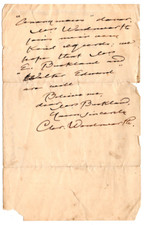 "Anonymous" donor.
Miss Wordsworth
joins me in very
kind regards, we
hope that Miss
E. Buckland and
Walter Edward
are well
Believe me,
dear Miss Buckland,
Yours sincerely
Chr. Wordsworth.